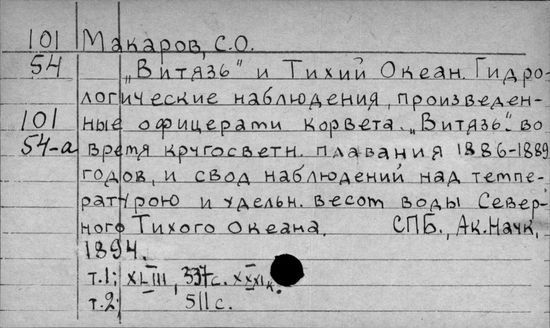 101 Макаров, С.О.
54 „Витязь“ и Тихий Океан. Гидро-
логические наблюдения, произведен-
101 ные офицерами корвета „Витязь“ во
54-а время кругосветн. плавания 1886-1889
годов, и свод наблюдений над темпе-
ратурою и удельн. весом воды Север-
ного Тихого Океана. СПБ., Ак.Наук,
1894.
т.1; XLIII, 337с. XXXI
т.2; 511с.